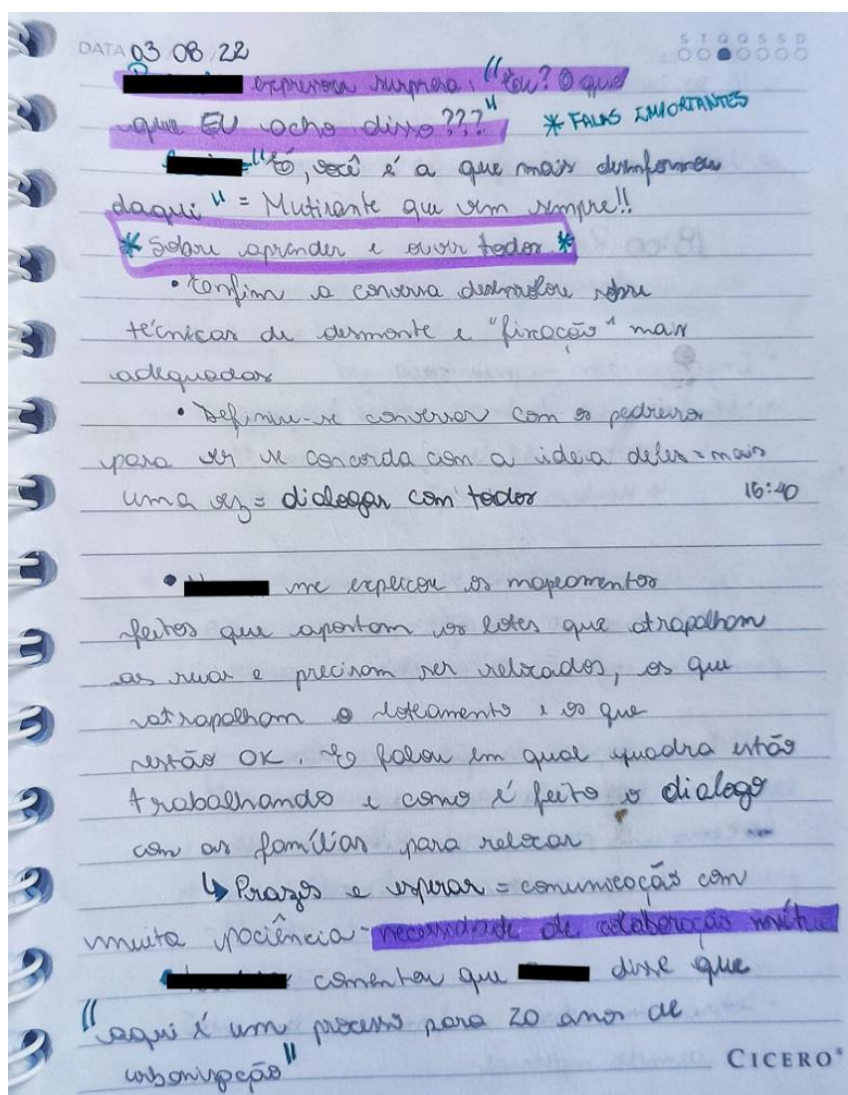 DATA 03/08/22
S T Q Q S S D
expressou surpresa. "Eu? O que
que EU acho disso???" * FALAS IMPORTANTES
"É, você é a que mais desinformou
daqui" = Mutirante que vem sempre!!
* Sobre aprender e ouvir todos *
• Enfim a conversa desenrolou sobre
técnicas de desmonte e "fixação" mais
adequadas
• Definiu-se conversar com os pedreiros
para ver se concorda com a ideia deles = mais
uma vez = dialogar com todos 16:40
• me explicou os mapeamentos
feitos que apontam os lotes que atrapalham
as ruas e precisam ser relocados, os que
atrapalham o loteamento e os que
estão OK. E falou em qual quadra estão
trabalhando e como é feito o dialogo
com as famílias para relocar
↳ Prazos e esperas = comunicação com
muita paciência - necessidade de colaboração mútua
comentou que disse que
"aqui é um processo para 20 anos de
urbanização"
CICERO